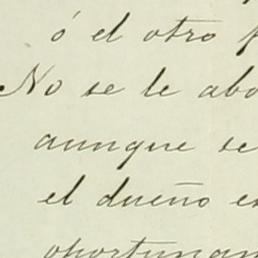 ó el otro
No se le abo
aunque se
el dueño e
oportunam